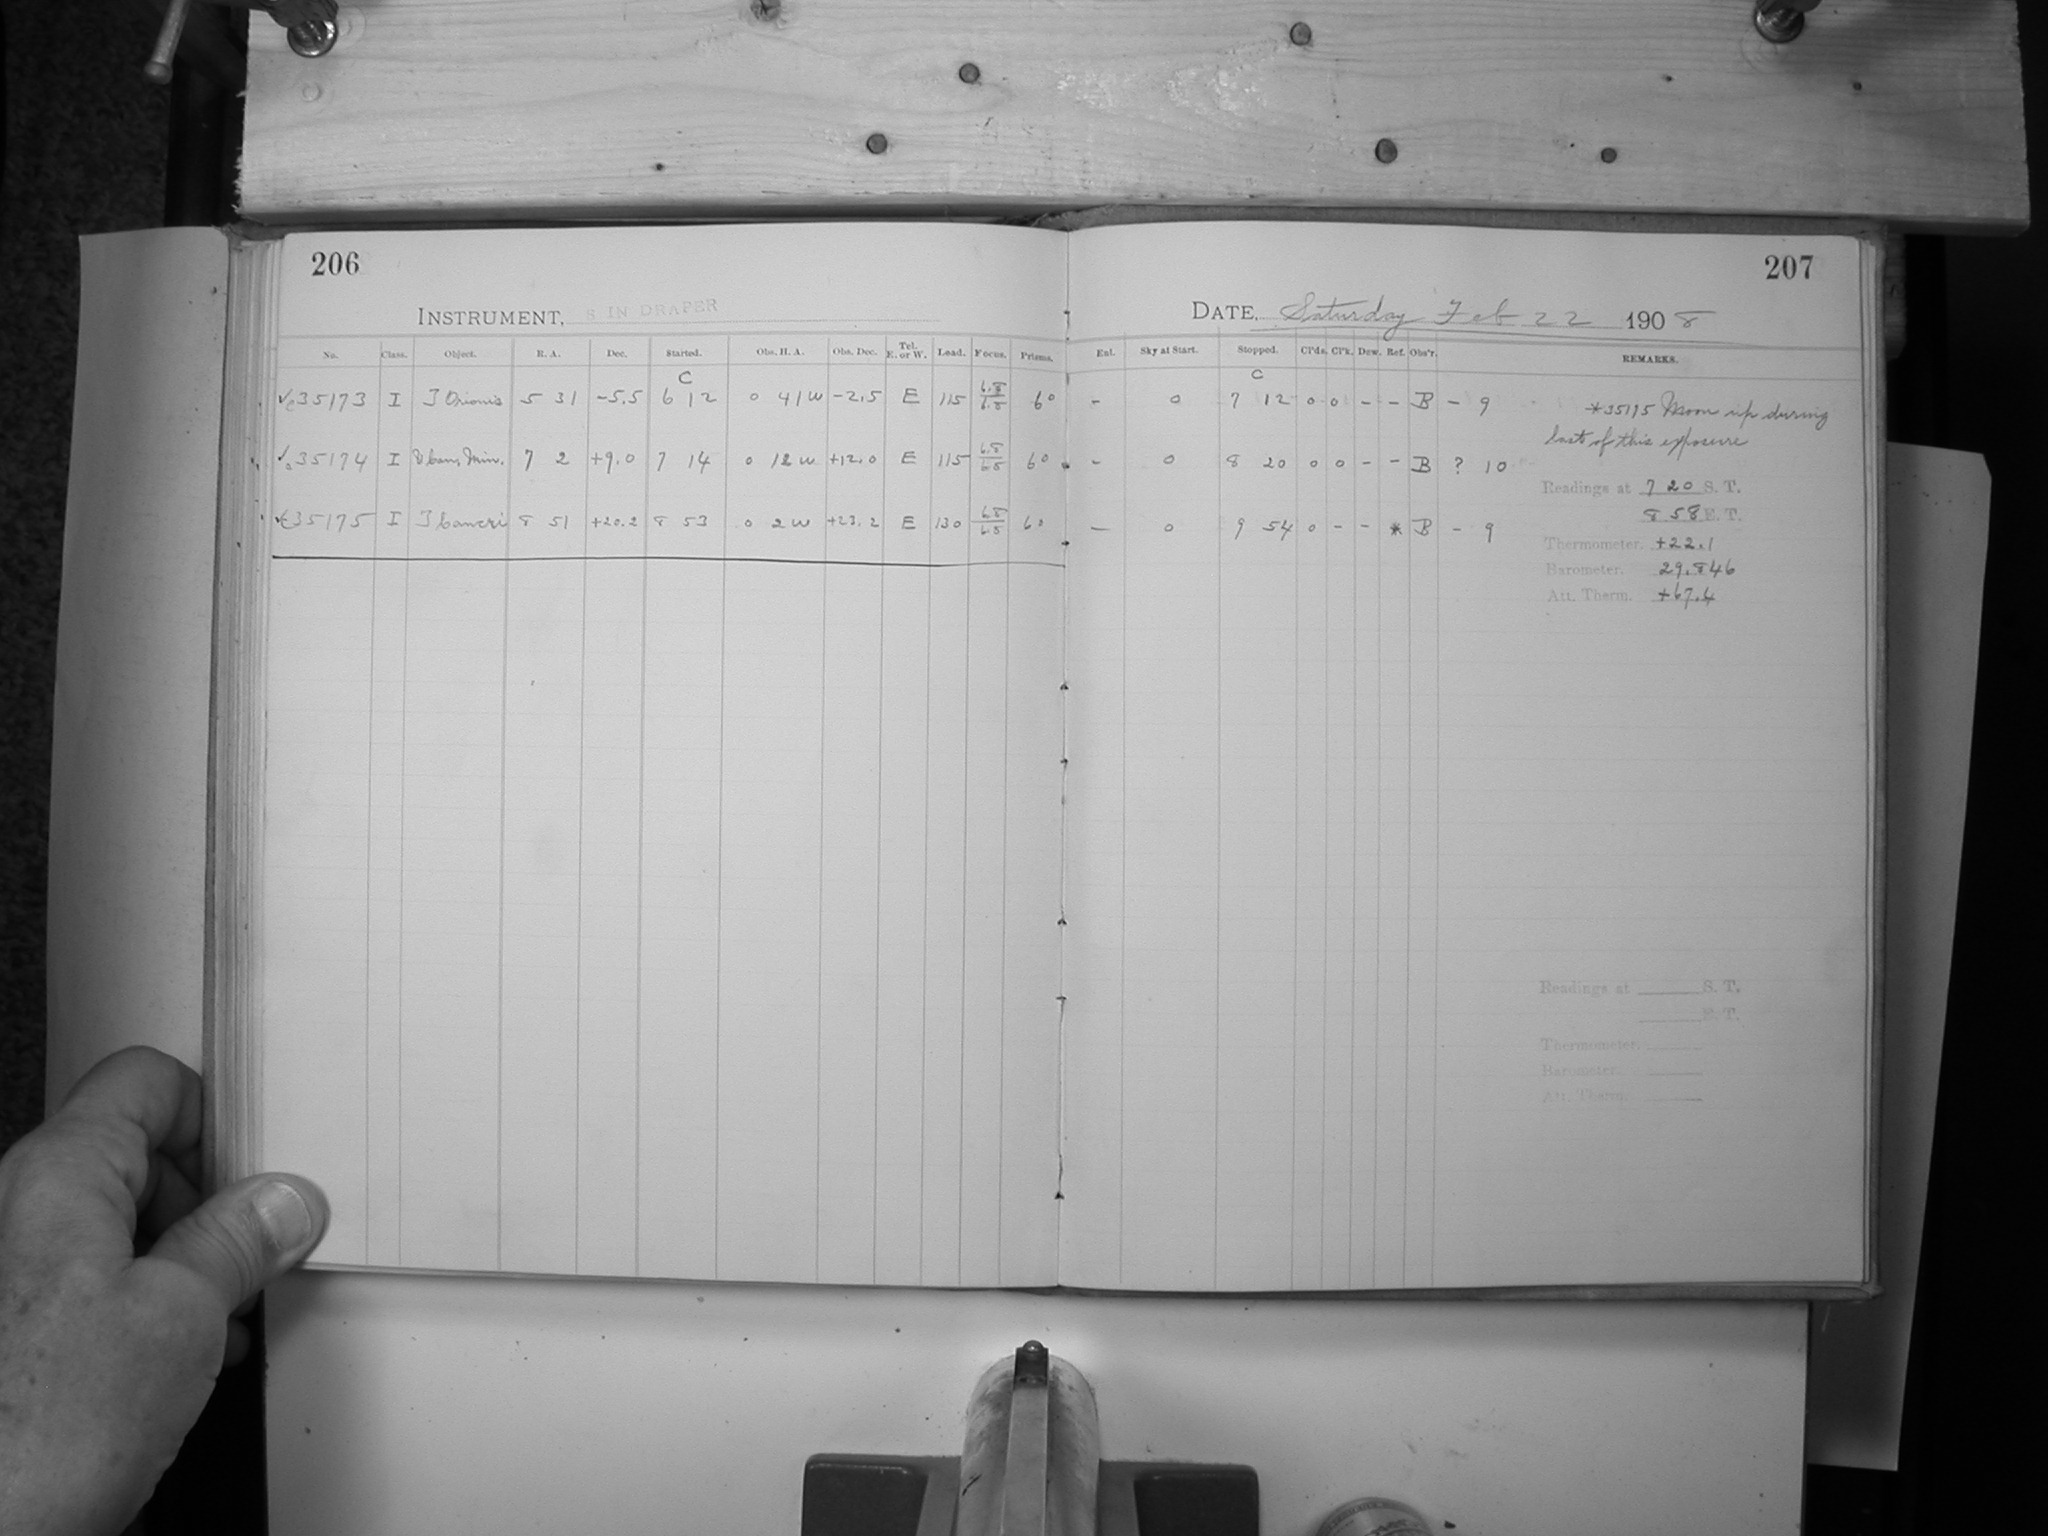 206
INSTRUMENT, 8 IN DRAPER
No. Class. Object. R. A. Dec. Started. Obs. H. A. Obs. Dec. Tel. E. or W. Load. Focus. Prisms.
C
35173 I T Orionis 5 31 −5.5 6 12 0 41 W −2.5 E 115 6.8/6.5 6°
35174 I V Can. Min. 7 2 +9.0 7 14 0 12 W +12.0 E 115 6.8/6.5 6°
35175 I T Cancri 8 51 +20.2 8 53 0 2 W +23.2 E 130 6.8/6.5 6°
207
DATE, Saturday Feb 22 1908
Ent. Sky at Start. Stopped. Cl'ds. Cl'k. Dew. Ref. Obs'r. REMARKS.
C
- 0 7 12 0 0 - - B - 9
- 0 8 20 0 0 - - B ? 10
- 0 9 54 0 - - * B - 9
*35175 Moon up during
last of this exposure
Readings at 7 20 S. T.
8 58 E. T.
Thermometer. +22.1
Barometer. 29.846
Att. Therm. +67.4
Readings at S. T.
E. T.
Thermometer.
Barometer.
Att. Therm.